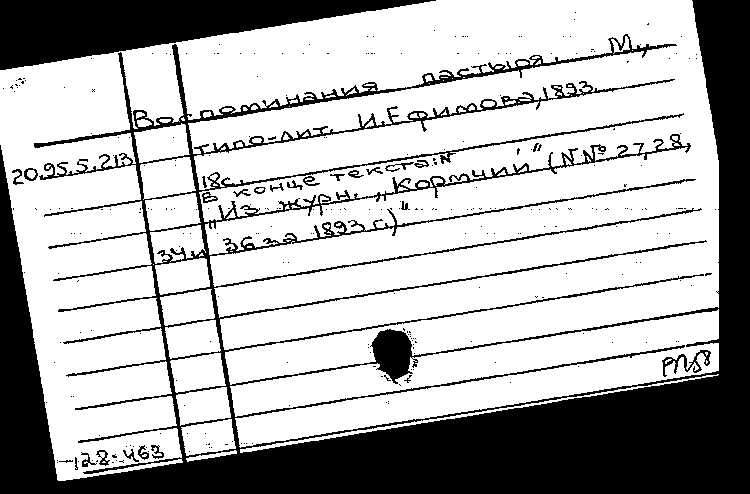 Воспоминания пастыря. М.,
типо-лит. И.Ефимова, 1893.
20.95.5.213
18с.
В конце текста:
"Из журн. „Кормчий" (№№ 27, 28,
34 и 36 за 1893 г.)"
128-463